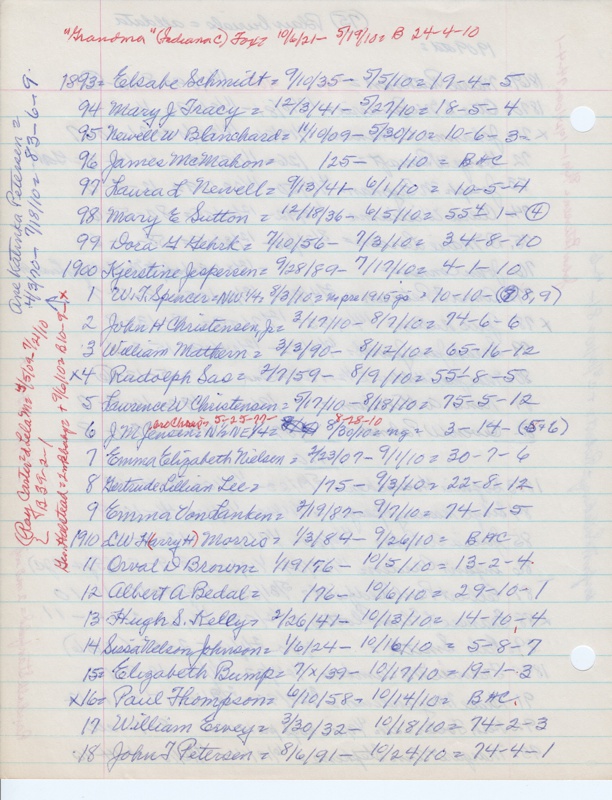 "Grandma" (Indiana C) Fox= 10/6/21- 5/19/10= B 24-4-10
1893= Elsabe Schmitt= 9/10/35- 5/5/10= 19-4-5
94 Mary J Tracy= 12/3/41- 5/27/10= 18-5-4
95 Newell W Blanchard= 11/19/09- 5/30/10= 10-6-3
96 James McMahon= 125- /10= B&C
97 Laura L Newell= 9/13/41- 6/1/10= 10-5-4
98 Mary E Sutton= 12/18/36- 6/5/10= 55 1/2-1-④
99 Dora G Gehrk= 7/10/56- 7/3/10= 34-8-10
1900 Kjerstine Jespersen= 9/28/89- 7/17/10= 4-1-10
1 W.T. Spencer= NW 1/4= 8/3/10= no pre 1915 gs= 10-10-(7 8,9)
2 John H Christensen, Jr= 3/17/10- 8/7/10= 74-6-6
3 William Mathern= 3/3/90- 8/12/10= 65-16-12
x4 Radolph Sas= 2/7/59- 8/9/10= 55 1/2-8-5
5 Laurence W Christensen= 5/17/10- 8/18/10= 75-5-12
5-25-77- 8-28-10
6 J.M. Jensen= N 1/2 NE 1/4= 8/30/10= ng= 3-14-(5+6)
7 Emma Elizabeth Nielsen= 2/23/07- 9/1/10= 30-7-6
8 Gertrude Lillian Lee= 175- 9/3/10= 22-8-12
9 Emma Von Lanken= 2/19/87- 9/7/10= 74-1-5
1910 L.W. (Harry H) Morris= 1/3/84- 9/26/10= B&C
11 Orval D Brown= 1/19/76- 10/5/10= 13-2-4
12 Albert A Bedal= 176- 10/6/10= 29-10-1
13 Hugh S. Kelly= 2/26/41- 10/13/10= 14-10-4
14 Sissa Nelson Johnson= 1/6/24- 10/16/10= 5-8-7
15= Elizabeth Bump= 7/x/39- 10/17/10= 19-1-3
x16= Paul Thompson= 6/10/58- 10/14/10= B&C.
17 William Ervey= 3/30/32- 10/18/10= 74-2-3
18 John T Petersen= 8/6/91- 10/24/10= 74-4-1
Ane Katinka Petersen=
4/3/70- 7/18/10= 83-6-9
(Ray Castor
B 39-2-1
+ 9/6/10= B 10-9-x